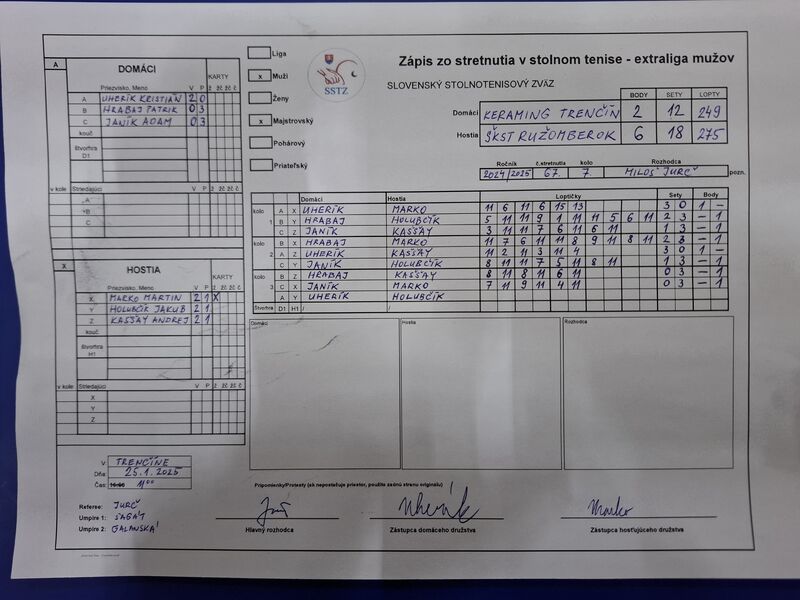 Zápis zo stretnutia v stolnom tenise - extraliga mužov
SLOVENSKÝ STOLNOTENISOVÝ ZVÄZ
SSTZ
Liga
x Muži
Ženy
x Majstrovský
Pohárový
Priateľský
BODY SETY LOPTY
Domáci KERAMING TRENČÍN 2 12 249
Hostia ŠKST RUŽOMBEROK 6 18 275
Ročník č.stretnutia kolo Rozhodca
2024/2025 67. 7. MILOŠ JURČ pozn.
A DOMÁCI
Priezvisko, Meno V P KARTY ž žč žč č
A UHERÍK KRISTIÁN 2 0
B HRABAJ PATRIK 0 3
C JANÍK ADAM 0 3
kouč
štvorhra
D1
v kole Striedajúci V P ž žč žč č
A
B
C
X HOSTIA
Priezvisko, Meno V P KARTY ž žč žč č
X MARKO MARTIN 2 1 X
Y HOLUBČÍK JAKUB 2 1
Z KASSAY ANDREJ 2 1
kouč
štvorhra
H1
v kole Striedajúci V P ž žč žč č
X
Y
Z
Domáci Hostia Loptičky Sety Body
kolo A X UHERÍK MARKO 11 6 11 6 15 13 3 0 1 -
1 B Y HRABAJ HOLUBČÍK 5 11 11 9 1 11 11 5 6 11 2 3 - 1
C Z JANÍK KASSAY 3 11 11 7 6 11 6 11 1 3 - 1
kolo B X HRABAJ MARKO 11 7 6 11 11 8 9 11 8 11 2 3 - 1
2 A Z UHERÍK KASSAY 11 2 11 3 11 4 3 0 1 -
C Y JANÍK HOLUBČÍK 8 11 11 7 5 11 8 11 1 3 - 1
kolo B Z HRABAJ KASSAY 8 11 8 11 6 11 0 3 - 1
3 C X JANÍK MARKO 7 11 9 11 4 11 0 3 - 1
A Y UHERÍK HOLUBČÍK
Štvorhra D1 H1 / /
Domáci Hostia Rozhodca
V: TRENČÍNE
Dňa: 25.1.2025
Čas: 11:00
Pripomienky/Protesty (ak nepostačuje priestor, použite zadnú stranu originálu)
Referee: JURČ
Umpire 1: SAGÁT
Umpire 2: GALANSKÁ
Jurč Uherík Marko
Hlavný rozhodca Zástupca domáceho družstva Zástupca hosťujúceho družstva